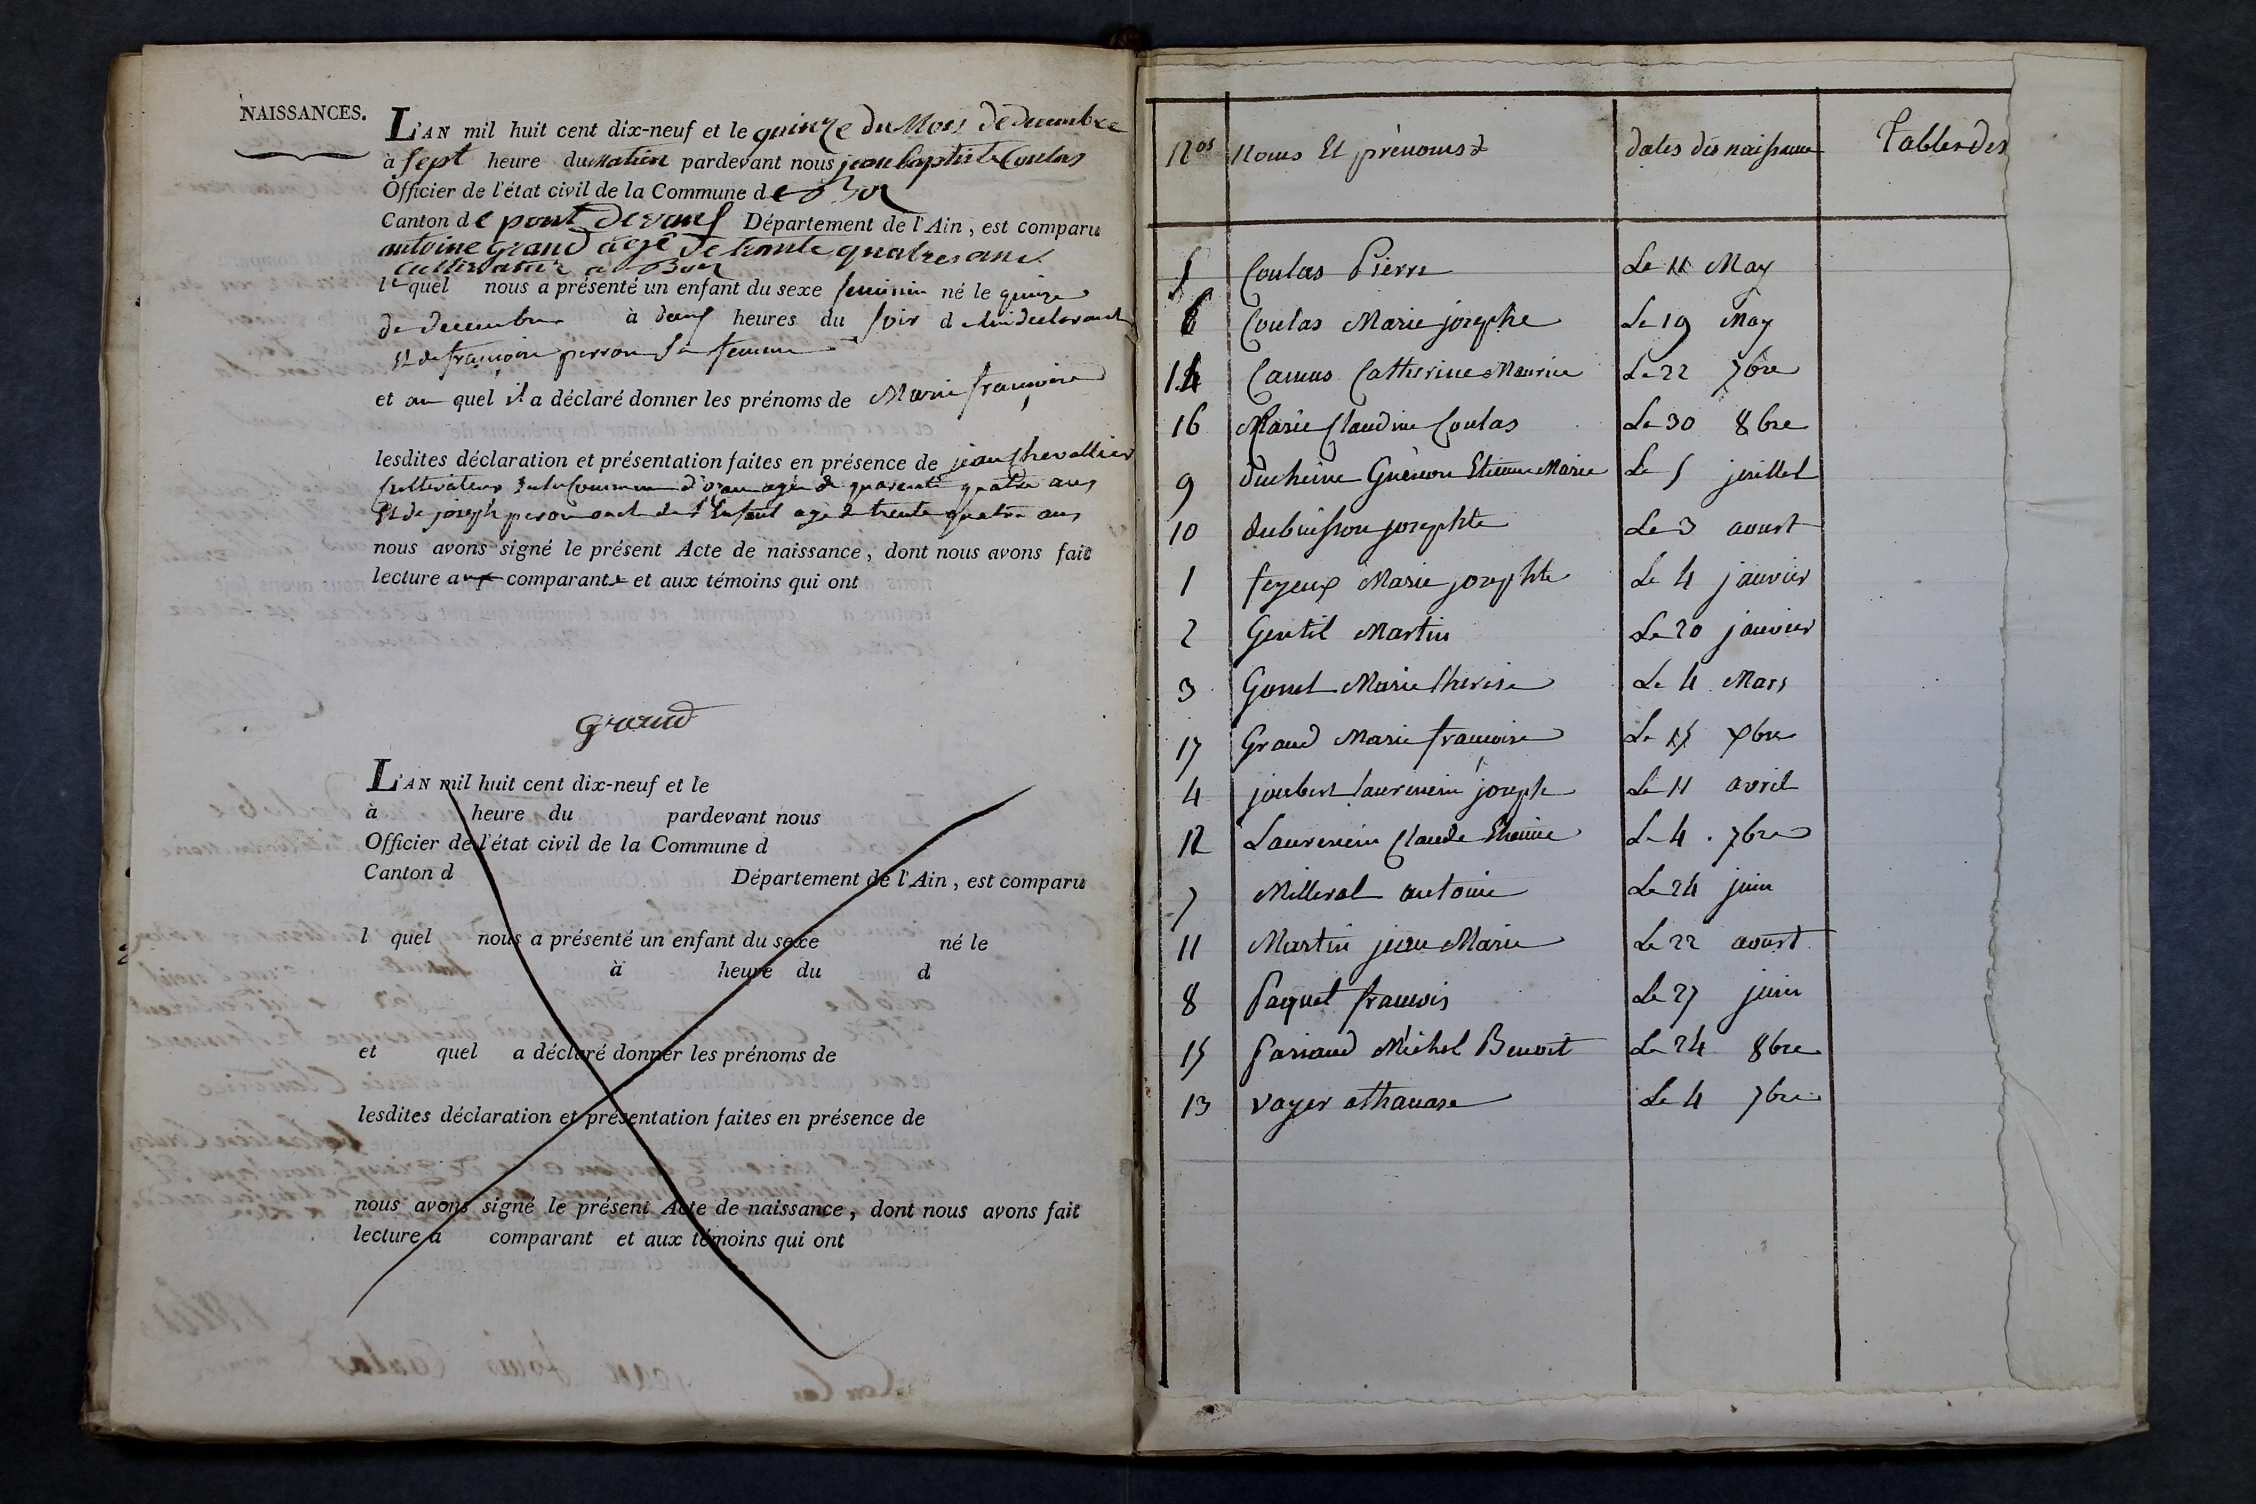 NAISSANCES.
L'AN mil huit cent dix-neuf et le quinze du Mois de decembre
à sept heure du matin pardevant nous jean baptiste Coulas
Officier de l'état civil de la Commune de Boz
Canton de pont devaux Département de l'Ain, est comparu
antoine grand agé de trente quatres ans
cultivateur a Boz
lequel nous a présenté un enfant du sexe feminin né le quinze
de decembre à deux heures du soir de lui declarant
Et de françoise perron sa femme
et au quel il a déclaré donner les prénoms de Marie françoise
lesdites déclaration et présentation faites en présence de jean Chevallier
Cultivateur de la Commune d'ozan agé de quarante quatre ans
Et de joseph peron oncl de l'Enfant agé de trente quatre ans
nous avons signé le présent Acte de naissance, dont nous avons fait
lecture aux comparants et aux témoins qui ont
grand
L'AN mil huit cent dix-neuf et le
à heure du pardevant nous
Officier de l'état civil de la Commune d
Canton d Département de l'Ain, est comparu
l quel nous a présenté un enfant du sexe né le
à heure du d
et quel a déclaré donner les prénoms de
lesdites déclaration et présentation faites en présence de
nous avons signé le présent Acte de naissance, dont nous avons fait
lecture a comparant et aux témoins qui ont
Nos Noms Et prénoms dates des naissance Tables des
5 Coulas Pierre Le 11 May
6 Coulas Marie josephe Le 19 May
14 Camus Catherine Maurice Le 22 7bre
16 Marie Claudine Coulas Le 30 8bre
9 ducheine Guenon Etienne Marie Le 5 juillet
10 dubuisson josephte Le 3 aoust
1 feyeux Marie josephte Le 4 janvier
2 Gentil Martin Le 20 janvier
3 Gonet Marie therese Le 4 Mars
17 Grand Marie françoise Le 15 Xbre
4 joubert laurencin joseph Le 11 avril
12 Laurencin Claude Etienne Le 4 7bre
7 Milleret antoine Le 24 juin
11 Martin jean Marie Le 22 aoust
8 Paquet francois Le 27 juin
15 Pariaud Michel Benoit Le 24 8bre
13 Voyer athanase Le 4 7bre